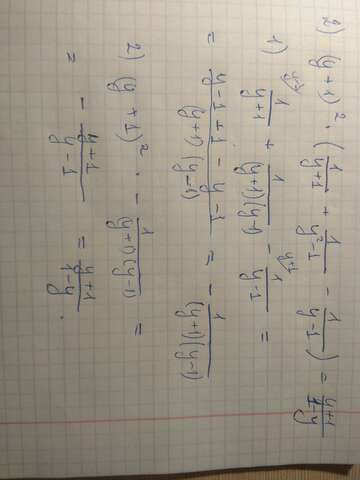 2) (y+1)² · (1/(y+1) + 1/(y²-1) - 1/(y-1)) = (y+1)/(1-y)
1) 1/(y+1) + 1/((y+1)(y-1)) - 1/(y-1) =
= (y-1+1-y-1)/((y+1)(y-1)) = - 1/((y+1)(y-1))
2) (y+1)² · - 1/((y+1)(y-1)) =
= - (y+1)/(y-1) = (y+1)/(1-y).